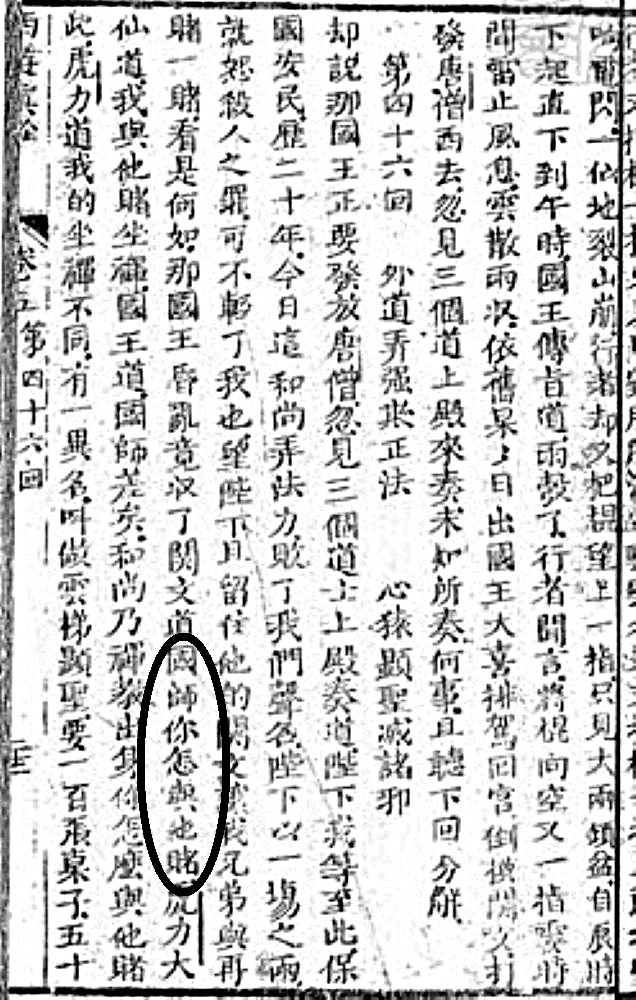 下起直下到午時國王傳旨道雨彀了行者聞言將棍向空又一指霎時
間雷止風息雲散雨收依舊杲〻日出國王大喜排駕回宮倒換關文打
發唐僧西去忽見三個道上殿來奏未知所奏何事且聽下回分解
第四十六回 外道弄强欺正法 心猿顯聖滅諸邪
却説那國王正要發放唐僧忽見三個道士上殿奏道陛下我等至此保
國安民歷二十年今日這和尚弄法力敗了我們聲名陛下以一塲之雨
就恕殺人之罪可不輕了我也望陛下且留住他的關文讓我兄弟與再
賭一賭看是何如那國王昏亂竟收了関文道國師你怎與他賭虎力大
仙道我與他賭坐禪國王道國師差矣和尚乃禪教出身你怎麽與他賭
此虎力道我的坐禪不同有一異名叫做雲梯顯聖要一百張桌子五十
第四十六回